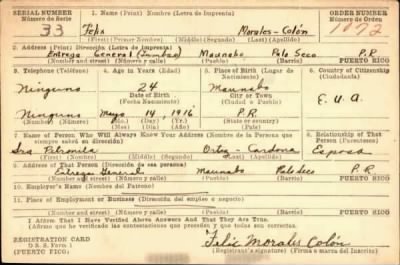 SERIAL NUMBER 1. Name (Print) Nombre (Letra de Imprenta) ORDER NUMBER
Número de Serie Número de Orden
33 Felix Morales-Colón 1072
(First) (Primer Nombre) (Middle) (Segundo) (Last) (Apellido)
2. Address (Print) Dirección (Letra de Imprenta)
Entrega General Maunabo Palo Seco P.R
(Number and street) (Número y calle) (Town) (Pueblo) (Barrio) PUERTO RICO
3. Telephone (Teléfono) 4. Age in Years (Edad) 5. Place of Birth (Lugar de Nacimiento) 6. Country of Citizenship (Ciudadanía)
Ninguno 24 Maunabo
Date of Birth City or Town E.U.A.
(Fecha Nacimiento) (Ciudad o Pueblo)
Ninguno Mayo 14, 1916 P.R
(Number) (Número) (Mo.) (Day) (Yr.)
7. Name of Person Who Will Always Know Your Address (Nombre de la Persona que siempre sabrá su dirección) 8. Relationship of That Person (Parentesco)
Sra Petronila Ortiz-Cardona Esposa
(First) (Primer Nombre) (Middle) (Segundo) (Last) (Apellido)
9. Address of That Person (Dirección de esa persona)
Entrega General Maunabo Palo Seco P.R
(Number and street) (Número y calle) (Town) (Pueblo) (Barrio) PUERTO RICO
10. Employer's Name (Nombre del Patrono)
11. Place of Employment or Business (Dirección del empleo o negocio)
(Number and street) (Número y calle) (Town) (Pueblo) (Barrio) PUERTO RICO
I Affirm That I Have Verified Above Answers And That They Are True.
(Afirmo que he verificado las contestaciones que preceden y que todas son correctas.)
REGISTRATION CARD Felix Morales Colón
D.S.S. Form 1
(PUERTO RICO) (Registrant's signature) (Firma o marca del Inscrito)